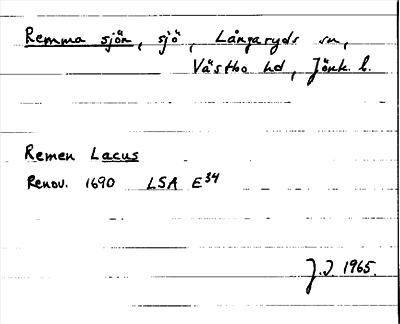 Remma sjön, sjö, Långaryds sn,
Västbo hd, Jönk. l.
Remen Lacus
Renov. 1690 LSA E34
J.I. 1965.